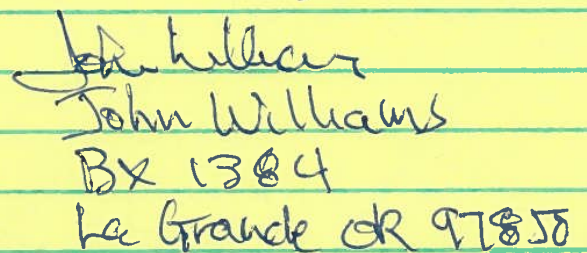 John Williams
John Williams
BX 1384
La Grande OR 97850